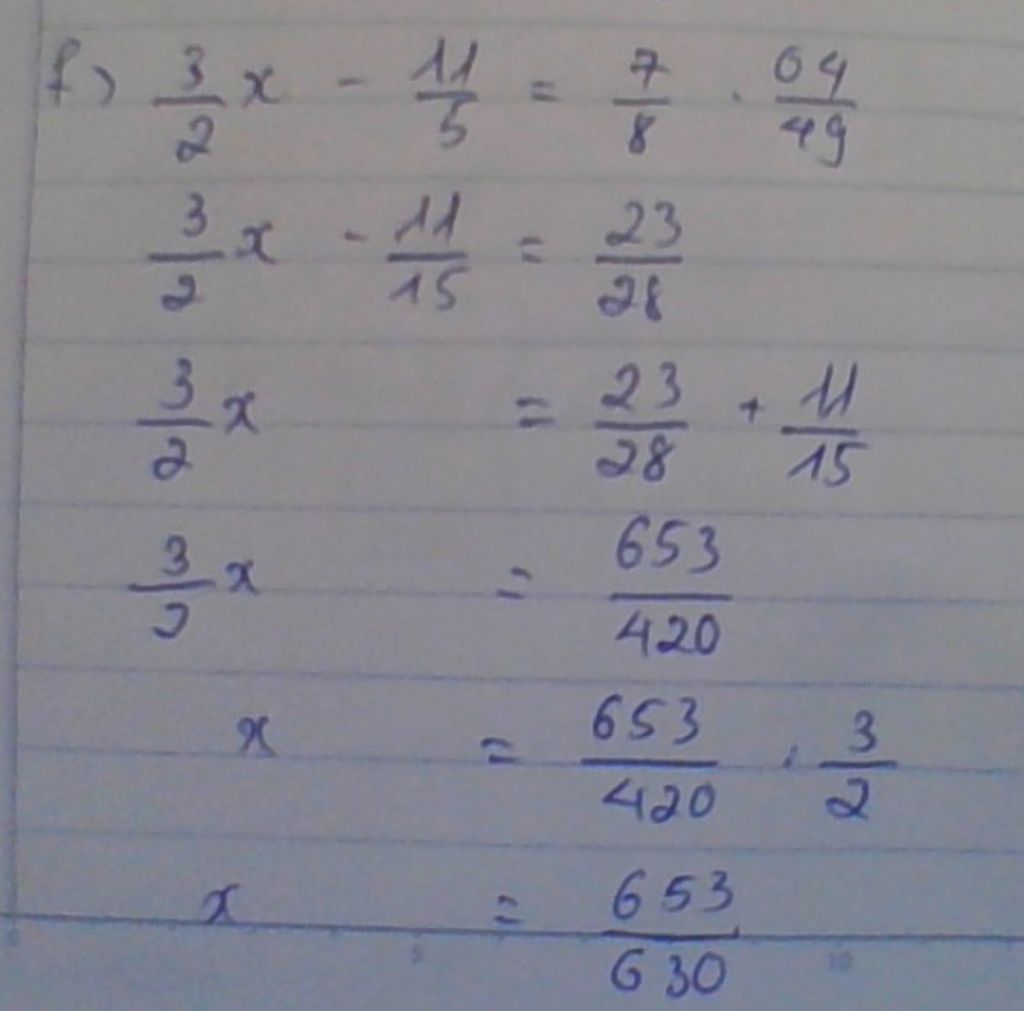 f) 3/2 x - 11/5 = 7/8 . 64/49
3/2 x - 11/15 = 23/28
3/2 x = 23/28 + 11/15
3/2 x = 653/420
x = 653/420 . 3/2
x = 653/630
5 10